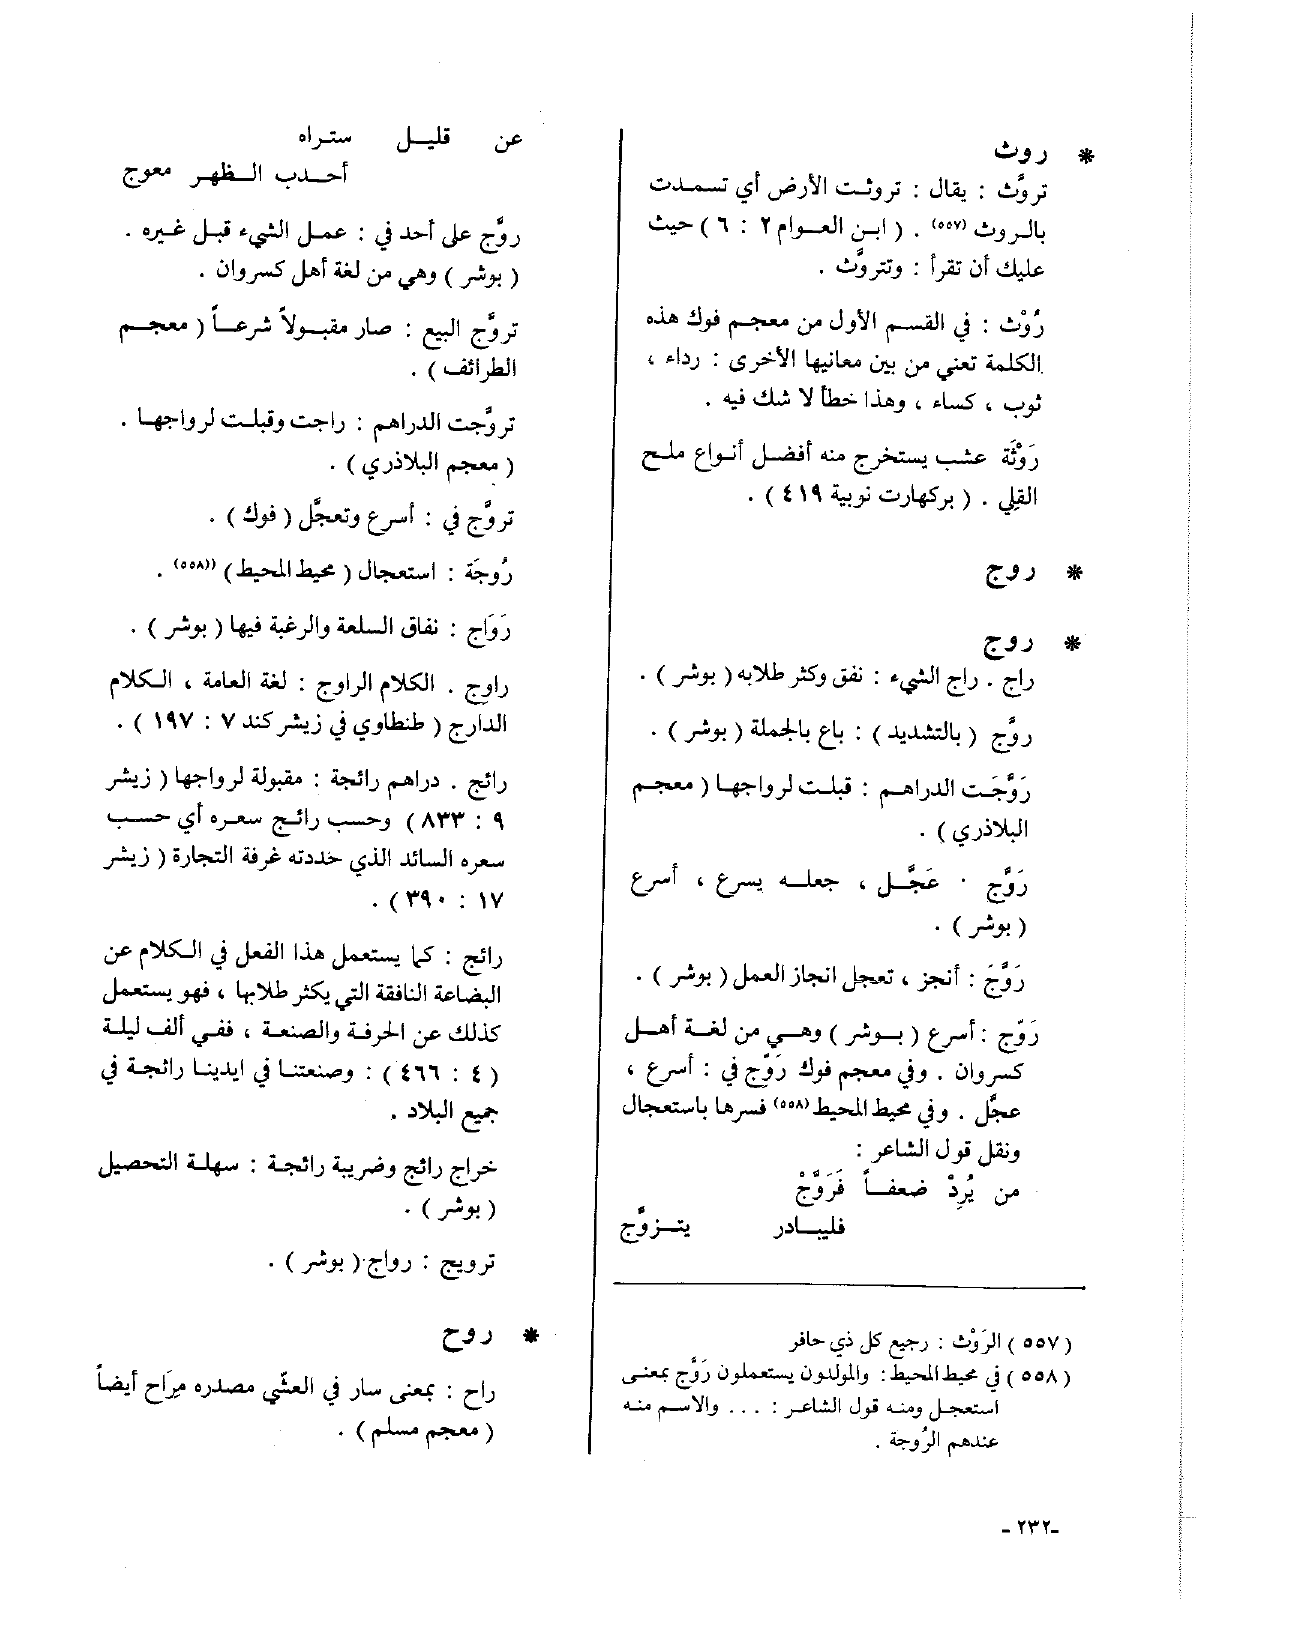 * روث
تروَّث : يقال : تروثت الأرض أي تسمدت
بالروث (٥٥٧) . ( ابن العوام ٢ : ٦ ) حيث
عليك أن تقرأ : وتتروَّث .
رُوْث : في القسم الأول من معجم فوك هذه
الكلمة تعني من بين معانيها الأخرى : رداء ،
ثوب ، كساء ، وهذا خطأ لا شك فيه .
رَوْثَة عشب يستخرج منه أفضل أنواع ملح
القلي . ( بركهارت نوبية ٤١٩ ) .
* روج
* روج
راج . راج الشيء : نفق وكثر طلابه ( بوشر ) .
روَّج ( بالتشديد ) : باع بالجملة ( بوشر ) .
رَوَّجَت الدراهم : قبلت لرواجها ( معجم
البلاذري ) .
رَوَّج · عَجَّل ، جعله يسرع ، أسرع
( بوشر ) .
رَوَّجَ : أنجز ، تعجل انجاز العمل ( بوشر ) .
رَوّج : أسرع ( بوشر ) وهي من لغة أهل
كسروان . وفي معجم فوك رَوَّج في : أسرع ،
عجَّل . وفي محيط المحيط (٥٥٨) فسرها باستعجال
ونقل قول الشاعر :
من يُرِدْ ضعفاً فَرَوَّجْ
فليبادر يتزوَّج
(٥٥٧) الرَوْث : رجيع كل ذي حافر
(٥٥٨) في محيط المحيط : والمولدون يستعملون رَوَّج بمعنى
استعجل ومنه قول الشاعر : ... والاسم منه
عندهم الرُوجة .
عن قليل ستراه
أحدب الظهر معوج
روَّج على أحد في : عمل الشيء قبل غيره .
( بوشر ) وهي من لغة أهل كسروان .
تروَّج البيع : صار مقبولاً شرعاً ( معجم
الطرائف ) .
تروَّجت الدراهم : راجت وقبلت لرواجها .
( معجم البلاذري ) .
تروَّج في : أسرع وتعجَّل ( فوك ) .
رُوجَة : استعجال ( محيط المحيط ) ((٥٥٨) .
رَوَاج : نفاق السلعة والرغبة فيها ( بوشر ) .
راوج . الكلام الراوج : لغة العامة ، الكلام
الدارج ( طنطاوي في زيشر كند ٧ : ١٩٧ ) .
رائج . دراهم رائجة : مقبولة لرواجها ( زيشر
٩ : ٨٣٣ ) وحسب رائج سعره أي حسب
سعره السائد الذي حددته غرفة التجارة ( زيشر
١٧ : ٣٩٠ ) .
رائج : كما يستعمل هذا الفعل في الكلام عن
البضاعة النافقة التي يكثر طلابها ، فهو يستعمل
كذلك عن الحرفة والصنعة ، ففي ألف ليلة
( ٤ : ٤٦٦ ) : وصنعتنا في ايدينا رائجة في
جميع البلاد .
خراج رائج وضريبة رائجة : سهلة التحصيل
( بوشر ) .
ترويج : رواج ( بوشر ) .
* روح
راح : بمعنى سار في العشّي مصدره مِرَاح أيضاً
( معجم مسلم ) .
-٢٣٢-